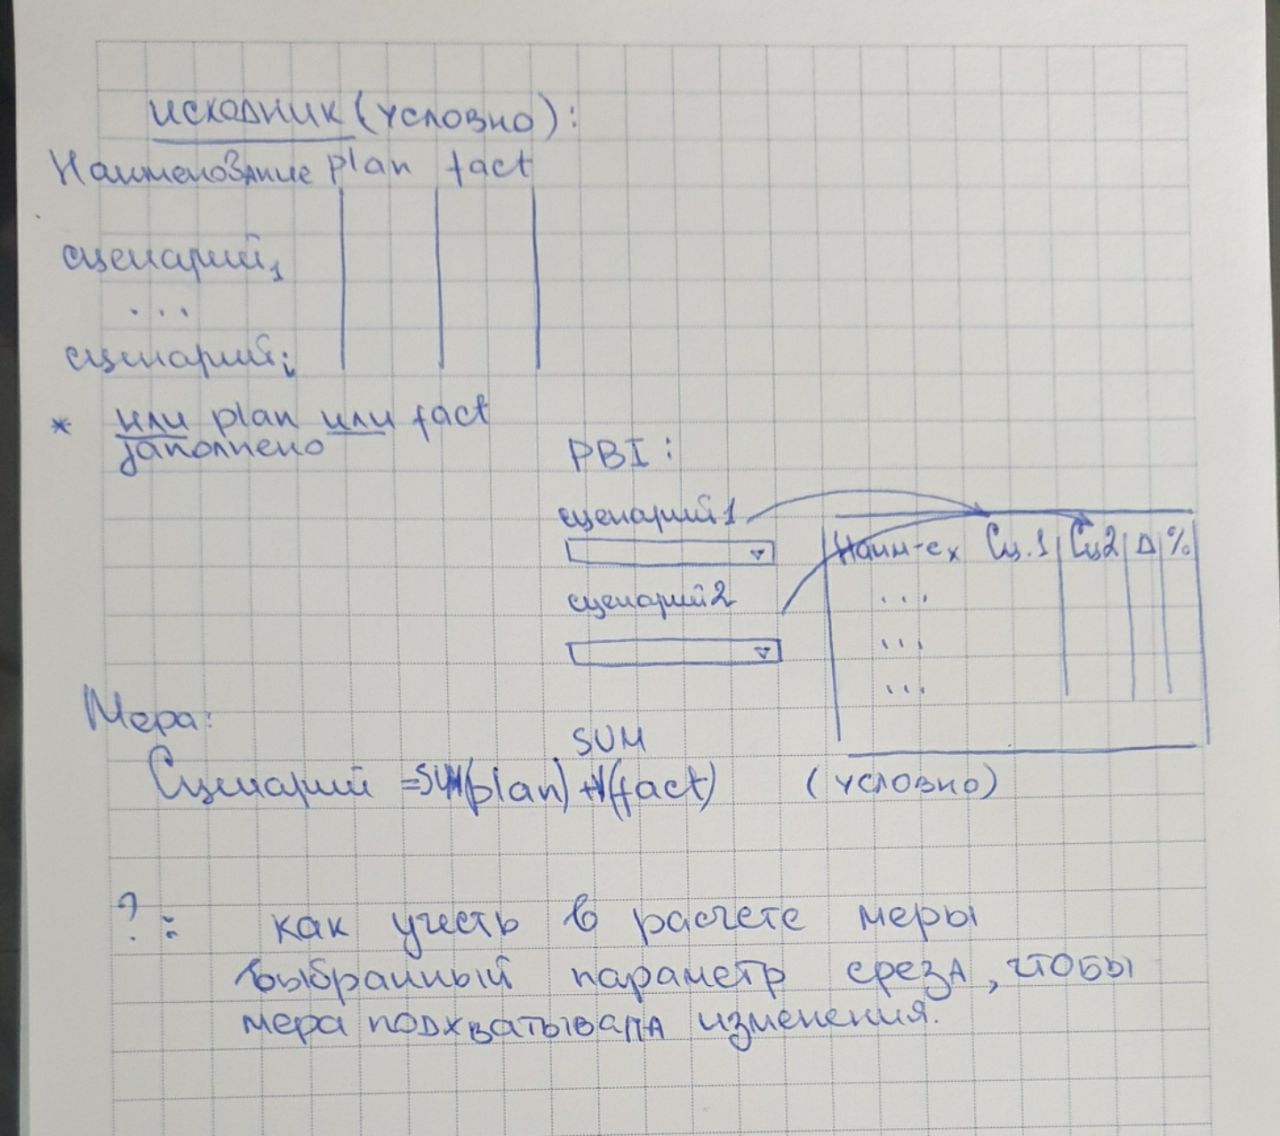 исходник (условно):
Наименование plan fact
сценарий 1
...
сценарий i
* или plan или fact
заполнено
PBI:
сценарий 1
сценарий 2
Наим-е х Сц.1 Сц2 Δ %
...
...
...
Мера:
SUM
Сценарий =SUM(plan) + (fact) (условно)
?: как учесть в расчете меры
выбранный параметр среза, чтобы
мера подхватывала изменения.